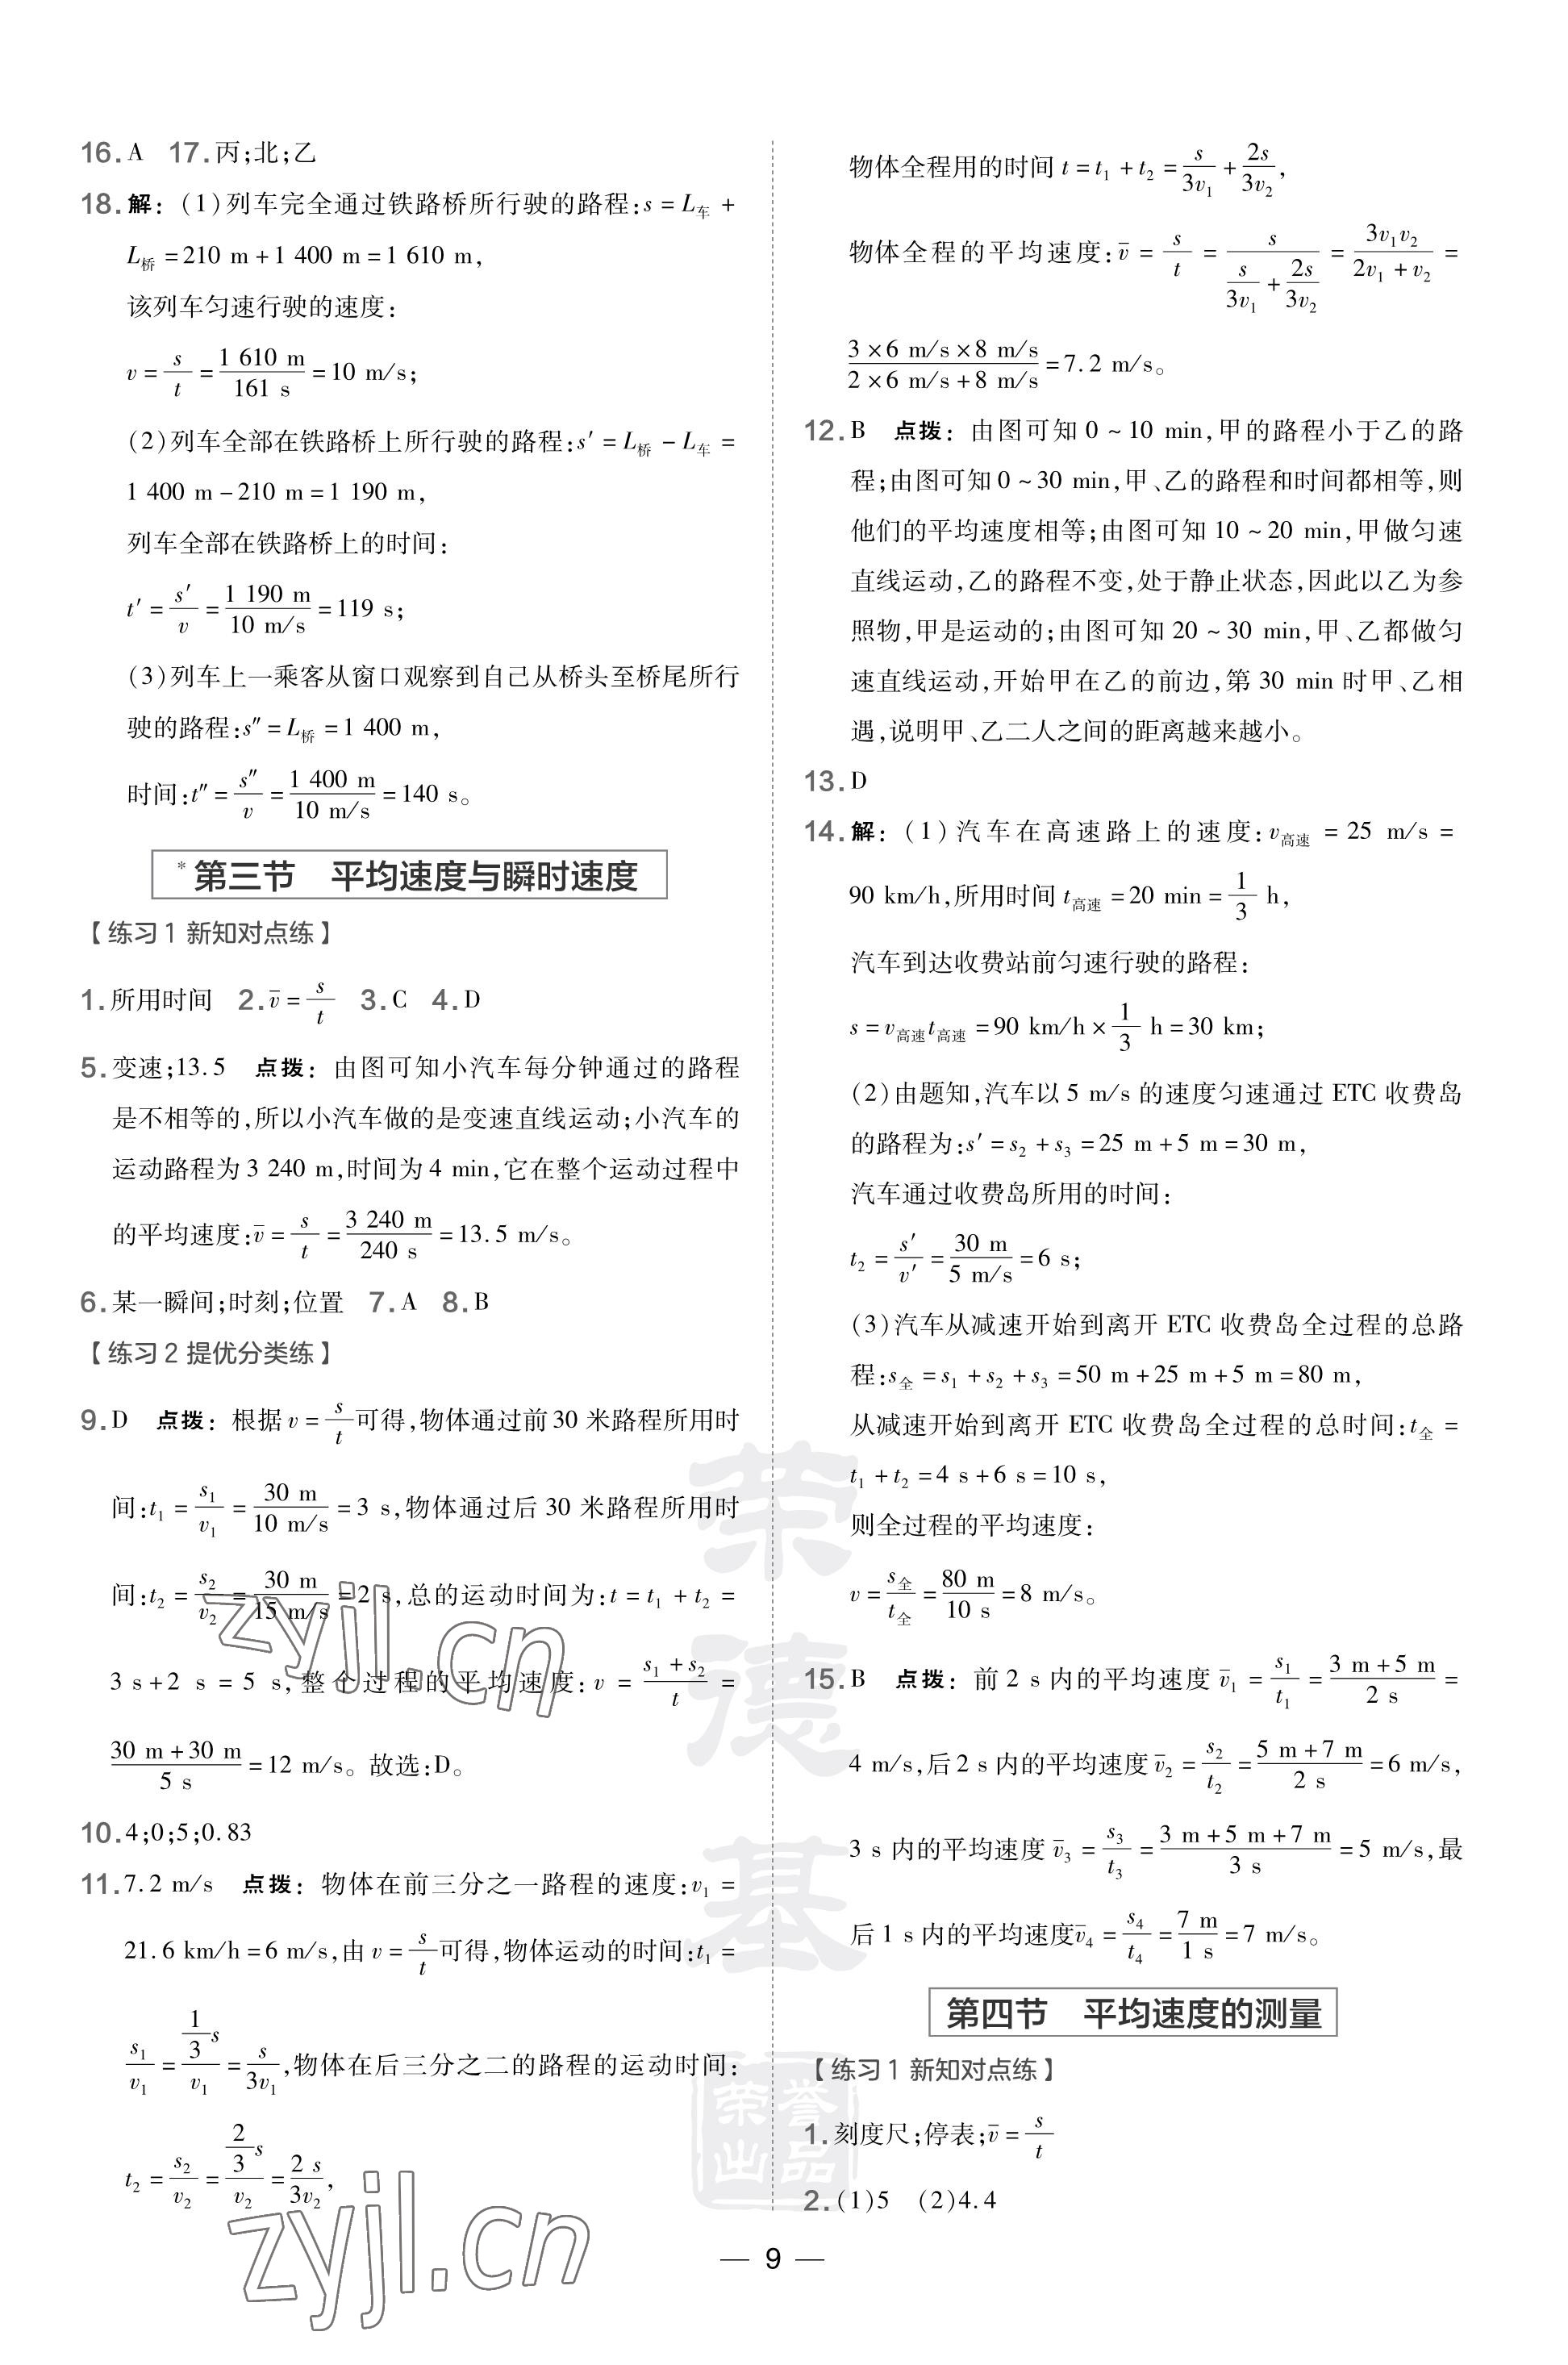 16. A 17. 丙;北;乙
18. 解: (1)列车完全通过铁路桥所行驶的路程:s=L车+
L桥=210 m+1 400 m=1 610 m,
该列车匀速行驶的速度:
v=s/t=1 610 m/161 s=10 m/s;
(2)列车全部在铁路桥上所行驶的路程:s′=L桥-L车=
1 400 m-210 m=1 190 m,
列车全部在铁路桥上的时间:
t′=s′/v=1 190 m/10 m/s=119 s;
(3)列车上一乘客从窗口观察到自己从桥头至桥尾所行
驶的路程:s″=L桥=1 400 m,
时间:t″=s″/v=1 400 m/10 m/s=140 s。
*第三节 平均速度与瞬时速度
【练习1 新知对点练】
1. 所用时间 2. v̄=s/t 3. C 4. D
5. 变速;13.5 点拨: 由图可知小汽车每分钟通过的路程
是不相等的,所以小汽车做的是变速直线运动;小汽车的
运动路程为3 240 m,时间为4 min,它在整个运动过程中
的平均速度:v̄=s/t=3 240 m/240 s=13.5 m/s。
6. 某一瞬间;时刻;位置 7. A 8. B
【练习2 提优分类练】
9. D 点拨: 根据v=s/t可得,物体通过前30米路程所用时
间:t₁=s₁/v₁=30 m/10 m/s=3 s,物体通过后30米路程所用时
间:t₂=s₂/v₂=30 m/15 m/s=2 s,总的运动时间为:t=t₁+t₂=
3 s+2 s=5 s,整个过程的平均速度:v=(s₁+s₂)/t=
(30 m+30 m)/5 s=12 m/s。故选:D。
10. 4;0;5;0.83
11. 7.2 m/s 点拨: 物体在前三分之一路程的速度:v₁=
21.6 km/h=6 m/s,由v=s/t可得,物体运动的时间:t₁=
s₁/v₁=(1/3)s/v₁=s/3v₁,物体在后三分之二的路程的运动时间:
t₂=s₂/v₂=(2/3)s/v₂=2s/3v₂,
物体全程用的时间t=t₁+t₂=s/3v₁+2s/3v₂,
物体全程的平均速度:v̄=s/t=s/(s/3v₁+2s/3v₂)=3v₁v₂/(2v₁+v₂)=
(3×6 m/s×8 m/s)/(2×6 m/s+8 m/s)=7.2 m/s。
12. B 点拨: 由图可知0~10 min,甲的路程小于乙的路
程;由图可知0~30 min,甲、乙的路程和时间都相等,则
他们的平均速度相等;由图可知10~20 min,甲做匀速
直线运动,乙的路程不变,处于静止状态,因此以乙为参
照物,甲是运动的;由图可知20~30 min,甲、乙都做匀
速直线运动,开始甲在乙的前边,第30 min时甲、乙相
遇,说明甲、乙二人之间的距离越来越小。
13. D
14. 解: (1)汽车在高速路上的速度:v高速=25 m/s=
90 km/h,所用时间t高速=20 min=1/3 h,
汽车到达收费站前匀速行驶的路程:
s=v高速t高速=90 km/h×1/3 h=30 km;
(2)由题知,汽车以5 m/s的速度匀速通过ETC收费岛
的路程为:s′=s₂+s₃=25 m+5 m=30 m,
汽车通过收费岛所用的时间:
t₂=s′/v′=30 m/5 m/s=6 s;
(3)汽车从减速开始到离开ETC收费岛全过程的总路
程:s全=s₁+s₂+s₃=50 m+25 m+5 m=80 m,
从减速开始到离开ETC收费岛全过程的总时间:t全=
t₁+t₂=4 s+6 s=10 s,
则全过程的平均速度:
v=s全/t全=80 m/10 s=8 m/s。
15. B 点拨: 前2 s内的平均速度v̄₁=s₁/t₁=(3 m+5 m)/2 s=
4 m/s,后2 s内的平均速度v̄₂=s₂/t₂=(5 m+7 m)/2 s=6 m/s,
3 s内的平均速度v̄₃=s₃/t₃=(3 m+5 m+7 m)/3 s=5 m/s,最
后1 s内的平均速度v̄₄=s₄/t₄=7 m/1 s=7 m/s。
第四节 平均速度的测量
【练习1 新知对点练】
1. 刻度尺;停表;v̄=s/t
2. (1)5 (2)4.4
— 9 —
荣德基
荣誉出品
zyjl.cn
zyjl.cn